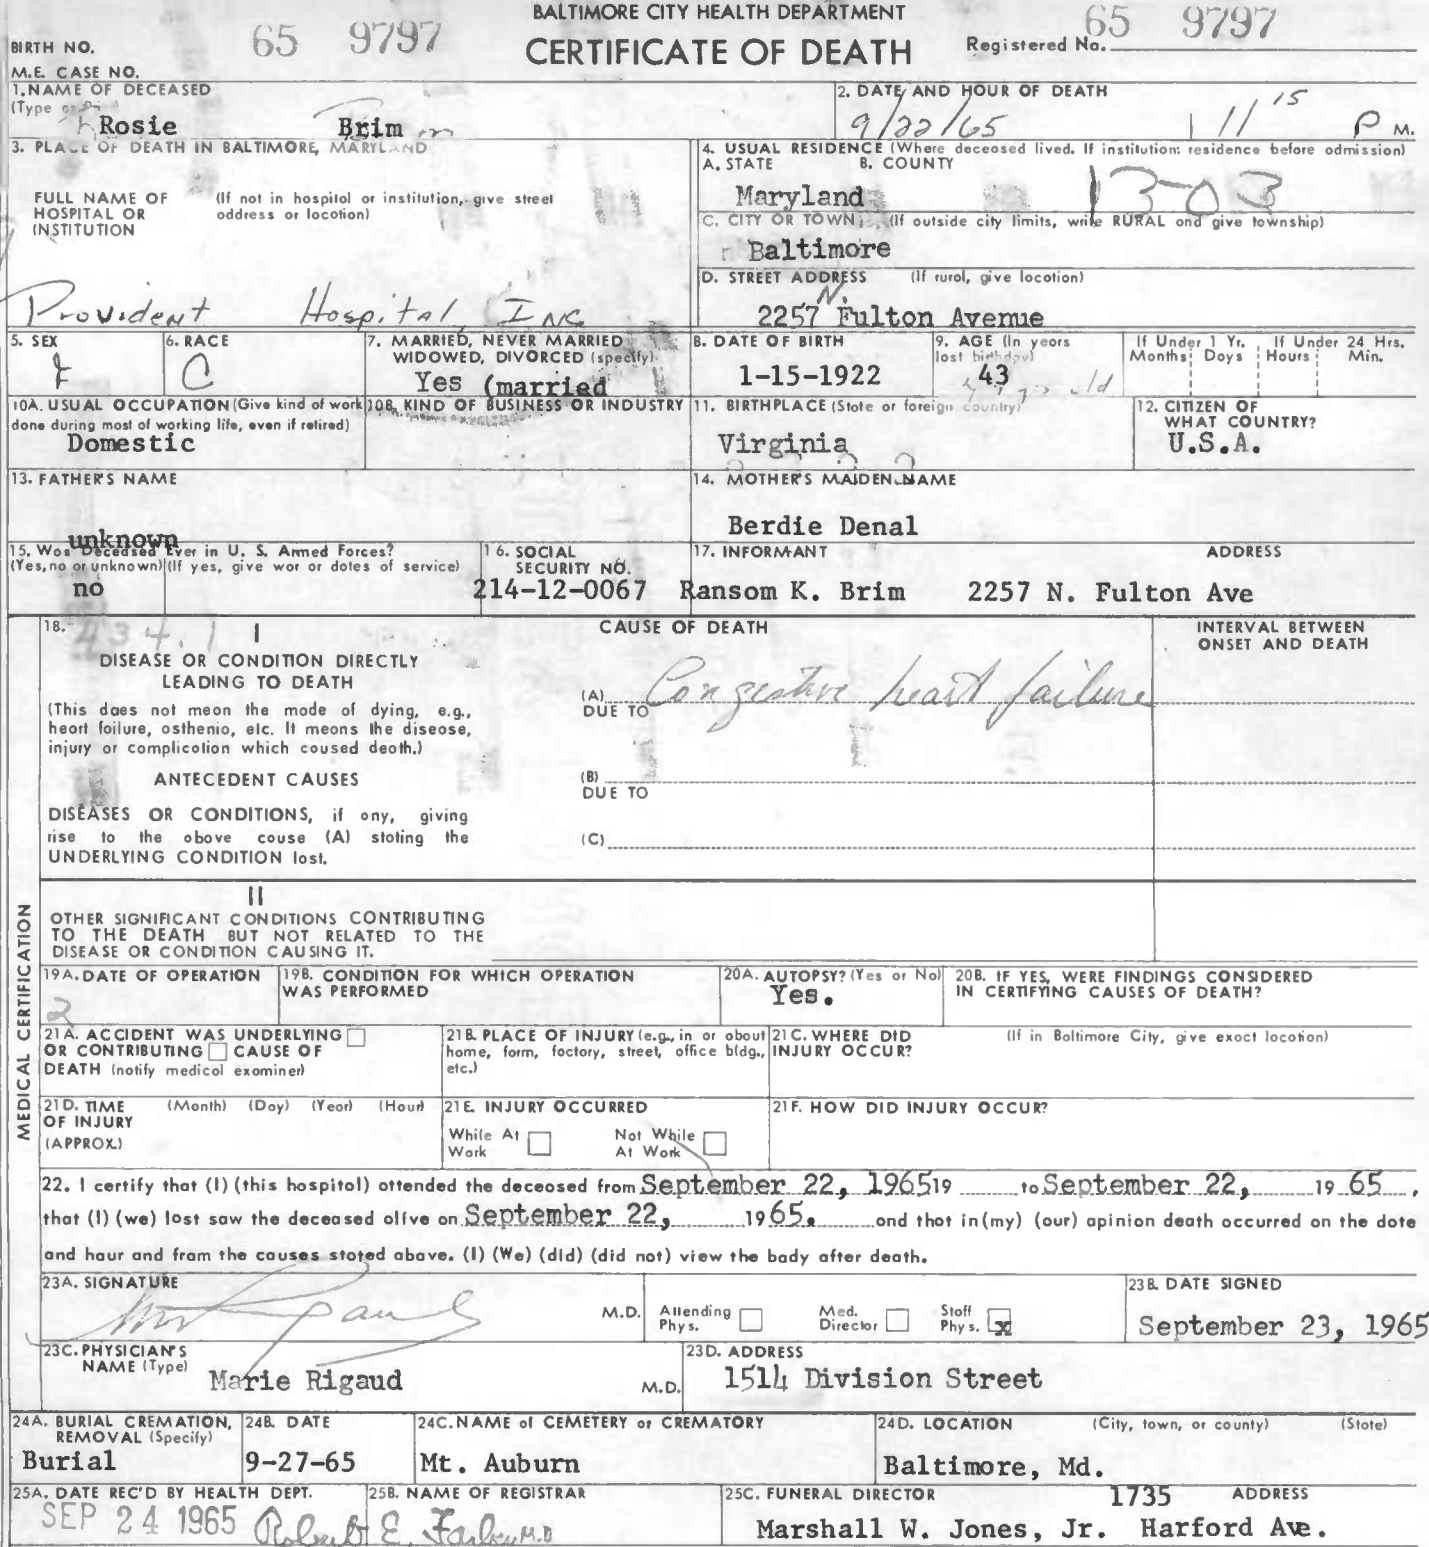 BALTIMORE CITY HEALTH DEPARTMENT
CERTIFICATE OF DEATH
BIRTH NO. 65 9797
Registered No. 65 9797
M.E. CASE NO.
1. NAME OF DECEASED
(Type
Rosie Brim
2. DATE AND HOUR OF DEATH
9/22/65 11 15 P M.
3. PLACE OF DEATH IN BALTIMORE, MARYLAND
FULL NAME OF HOSPITAL OR INSTITUTION
(If not in hospital or institution, give street address or location)
Provident Hospital, Inc
4. USUAL RESIDENCE (Where deceased lived. If institution: residence before admission)
A. STATE B. COUNTY
Maryland 13-03
C. CITY OR TOWN (If outside city limits, write RURAL and give township)
Baltimore
D. STREET ADDRESS (If rural, give location)
2257 N. Fulton Avenue
5. SEX
F
6. RACE
C
7. MARRIED, NEVER MARRIED WIDOWED, DIVORCED (specify)
Yes (married
8. DATE OF BIRTH
1-15-1922
9. AGE (In years last birthday)
43
If Under 1 Yr. Months Days
If Under 24 Hrs. Hours Min.
10A. USUAL OCCUPATION (Give kind of work done during most of working life, even if retired)
Domestic
10B. KIND OF BUSINESS OR INDUSTRY
11. BIRTHPLACE (State or foreign country)
Virginia
12. CITIZEN OF WHAT COUNTRY?
U.S.A.
13. FATHER'S NAME
unknown
14. MOTHER'S MAIDEN NAME
Berdie Denal
15. Was Deceased Ever in U. S. Armed Forces?
(Yes, no or unknown) (If yes, give war or dates of service)
no
16. SOCIAL SECURITY NO.
214-12-0067
17. INFORMANT ADDRESS
Ransom K. Brim 2257 N. Fulton Ave
18. 434.1 I
DISEASE OR CONDITION DIRECTLY
LEADING TO DEATH
(This does not mean the mode of dying, e.g.,
heart failure, asthenia, etc. It means the disease,
injury or complication which caused death.)
ANTECEDENT CAUSES
DISEASES OR CONDITIONS, if any, giving
rise to the above cause (A) stating the
UNDERLYING CONDITION last.
CAUSE OF DEATH
INTERVAL BETWEEN ONSET AND DEATH
(A) Congestive heart failure
DUE TO
(B)
DUE TO
(C)
II
OTHER SIGNIFICANT CONDITIONS CONTRIBUTING
TO THE DEATH BUT NOT RELATED TO THE
DISEASE OR CONDITION CAUSING IT.
MEDICAL CERTIFICATION
19A. DATE OF OPERATION
2
19B. CONDITION FOR WHICH OPERATION WAS PERFORMED
20A. AUTOPSY? (Yes or No)
Yes.
20B. IF YES, WERE FINDINGS CONSIDERED IN CERTIFYING CAUSES OF DEATH?
21A. ACCIDENT WAS UNDERLYING
OR CONTRIBUTING CAUSE OF
DEATH (notify medical examiner)
21B. PLACE OF INJURY (e.g., in or about home, farm, factory, street, office bldg., etc.)
21C. WHERE DID INJURY OCCUR? (If in Baltimore City, give exact location)
21D. TIME OF INJURY (APPROX.) (Month) (Day) (Year) (Hour)
21E. INJURY OCCURRED
While At Work Not While At Work
21F. HOW DID INJURY OCCUR?
22. I certify that (I) (this hospital) attended the deceased from September 22, 1965 19 to September 22, 19 65 ,
that (I) (we) last saw the deceased alive on September 22, 1965. and that in (my) (our) opinion death occurred on the date
and hour and from the causes stated above. (I) (We) (did) (did not) view the body after death.
23A. SIGNATURE
M.D. Attending Phys. Med. Director Staff Phys. X
23B. DATE SIGNED
September 23, 1965
23C. PHYSICIAN'S NAME (Type)
Marie Rigaud M.D.
23D. ADDRESS
1514 Division Street
24A. BURIAL CREMATION, REMOVAL (Specify)
Burial
24B. DATE
9-27-65
24C. NAME of CEMETERY or CREMATORY
Mt. Auburn
24D. LOCATION (City, town, or county) (State)
Baltimore, Md.
25A. DATE REC'D BY HEALTH DEPT.
SEP 24 1965
25B. NAME OF REGISTRAR
Robert E. Farber M.D
25C. FUNERAL DIRECTOR ADDRESS
1735
Marshall W. Jones, Jr. Harford Ave.